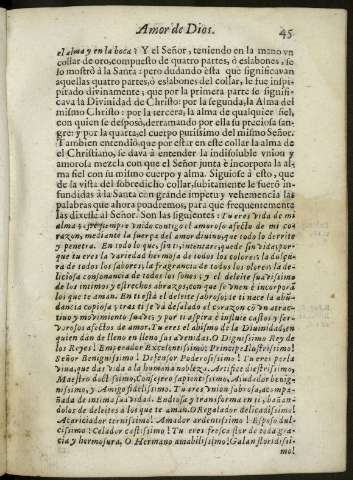 Amor de Dios. 45
el alma y en la boca? Y el Señor, teniendo en la mano vn
collar de oro, compuesto de quatro partes, ò eslabones, se
lo mostrò à la Santa: pero dudando èsta què significavan
aquellas quatro partes, ò eslabones del collar, le fue inspi-
pirado divinamente; que por la primera parte se signifi-
cava la Divinidad de Christo: por la segunda, la Alma del
mismo Christo: por la tercera, la alma de qualquier fiel,
con quien se desposò, derramando por ella su preciosa san-
gre: y por la quarta, el cuerpo purissimo del mismo Señor.
Tambien entendiò, que por estar en este collar la alma de
el Christiano, se dava à entender la indissoluble vnion y
amorosa mezcla con que el Señor junta è incorpora la al-
ma fiel con su mismo cuerpo y alma. Siguiose à esto, que
de la vista del sobredicho collar, subitamente le fuerõ in-
fundidas à la Santa con grande impetu y vehemencia las
palabras que ahora pondremos, para que frequentemente
las dixesse al Señor. Son las siguientes: Tu eres vida de mi
alma: siempre vnido contigo el amoroso afecto de mi co-
razon, mediante la fuerça del amor divino, que todo lo derrite
y penetra. En todo lo que, sin ti, intentare, quede sin vida; por-
que tu eres la variedad hermosa de todos los colores: la dulçu-
ra de todos los sabores: la fragrancia de todos los olores: la de-
liciosa consonancia de todos los sones: y el deleite suavissimo
de los intimos y estrechos abrazos, con que se vnen è incorporã
los que te aman. En ti està el deleite sabroso: de ti nace la abũ-
dancia copiosa: tras ti se và desalado el corazon cõ vn atrac-
tivo y movimiento suave: y por ti aspira è influie castos y fer-
vorosos afectos de amor. Tu eres el abismo de la Divinidad, en
quien dan de lleno en lleno sus avenidas. O Dignissimo Rey de
los Reyes! Emperador Excelentissimo: Principe Ilustrissimo!
Señor Benignissimo! Defensor Poderosissimo! Tu eres perla
viva, que das vida à la humana nobleza. Artifice diestrissimo,
Maestro doctissimo, Consejero sapientissimo, Audador benig-
nissimo, y Amigo fidelissimo. Tu eres vnion sabrosa, acompa-
ñada de intima suavidad. Endiosa y transforma en ti, bañan-
dolos de deleites à los que te aman. O Regalador delicadissimo!
Acariciador ternissimo! Amador ardentissimo! Esposo dul-
cissimo! Celador castissimo! Tu eres fresca flor de toda gra-
cia y hermosura. O Hermano amabilissimo! Galan floridissi-
mo!